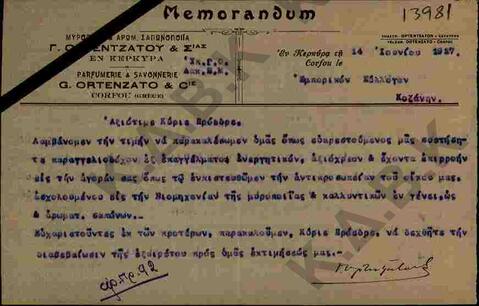 Memorandum
13981
ΜΥΡΟΠΟΙΪΑ & ΑΡΩΜ. ΣΑΠΩΝΟΠΟΙΪΑ
Γ. ΟΡΤΕΝΤΖΑΤΟΥ & ΣΙΑΣ
ΕΝ ΚΕΡΚΥΡΑ
PARFUMERIE & SAVONNERIE
G. ORTENZATO & CIE
CORFOU (GRÈCE)
Ἐν Κερκύρᾳ τῇ 14 Ἰουνίου 1927
Corfou le
Ἐμπορικὸν Σύλλογον
Κοζάνην.
Ἀξιότιμε Κύριε Πρόεδρε.
Λαμβάνομεν τὴν τιμὴν νὰ παρακαλέσωμεν ὑμᾶς ὅπως εὐαρεστούμενος μᾶς συστήση-
τε παραγγελιοδόχον ἐξ ἐπαγγέλματος ἐνεργητικόν, ἀξιόχρεων & ἔχοντα ἐπιρροὴν
εἰς τὴν ἀγοράν σας ὅπως τῷ ἐμπιστευθῶμεν τὴν ἀντιπροσωπείαν τοῦ οἴκου μας,
ἀσχολουμένου εἰς τὴν Βιομηχανίαν τῆς μυροποιΐας & καλλυντικῶν ἐν γένει, ὡς
& ἀρωματ. σαπώνων.-
Εὐχαριστοῦντες ἐκ τῶν προτέρων, παρακαλοῦμεν, Κύριε Πρόεδρε, νὰ δεχθῆτε τὴν
διαβεβαίωσιν τῆς ἐξαιρέτου πρὸς ὑμᾶς ἐκτιμήσεώς μας.-
Κ.Α.Β.Κ